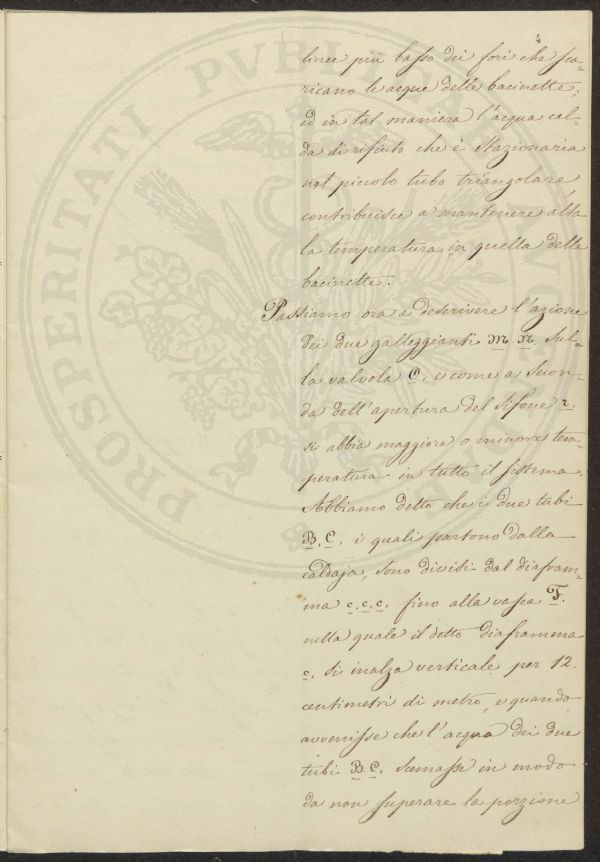 4
linee più basso dei fori che sca=
ricano le acque delle bacinette;
ed in tal maniera l'acqua cal=
da di rifiuto che è stazionaria
nel piccolo tubo triangolare,
contribuisce a mantenere alta
la temperatura in quella delle
bacinette.
Passiamo ora a descrivere l'azione
dei due galleggianti M. N. sul=
la valvola O. e come a secon=
da dell'apertura del sifone r.
si abbia maggiore o minore tem=
peratura in tutto il sistema.
Abbiamo detto che i due tubi
B. C. i quali partono dalla
caldaja, sono divisi dal diafram=
ma c.c.c. fino alla vasca F.
nella quale il detto diaframma
c. si inalza verticale per 12.
centimetri di metro, e quando
avvenisse che l'acqua dei due
tubi B. C. scemasse in modo
da non superare la porzione
PROSPERITATI PVBLICAE